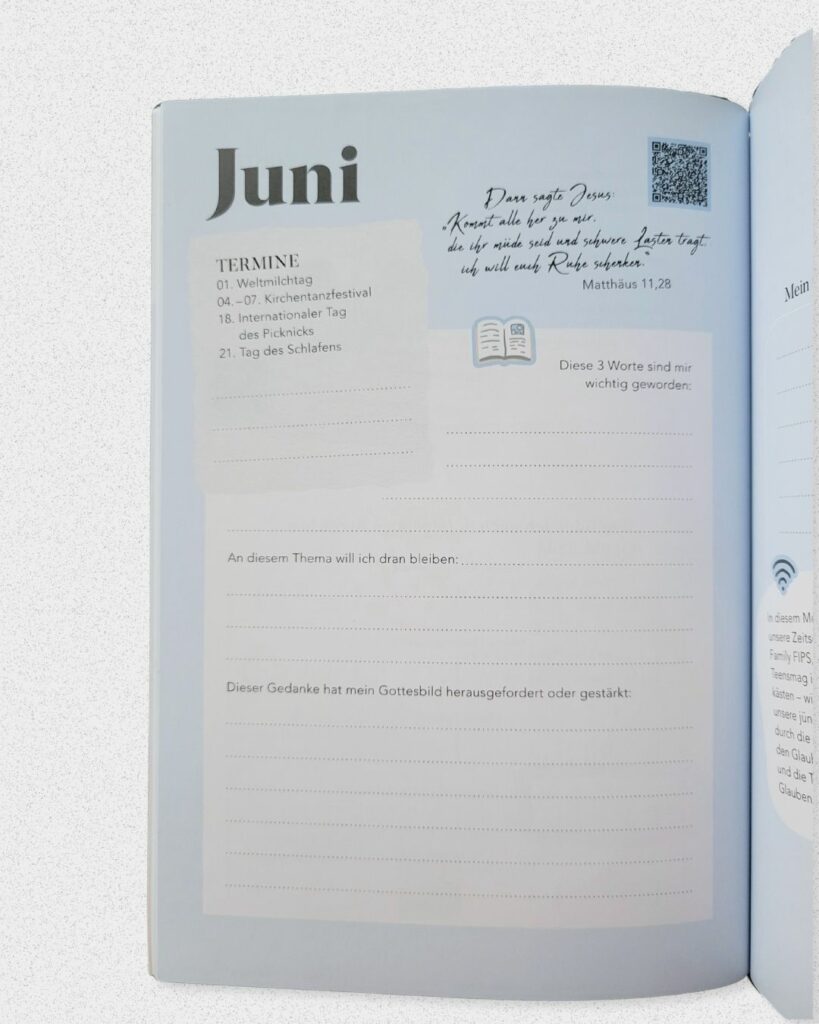 Juni
Dann sagte Jesus:
„Kommt alle her zu mir,
die ihr müde seid und schwere Lasten tragt,
ich will euch Ruhe schenken.“
Matthäus 11,28
TERMINE
01. Weltmilchtag
04.–07. Kirchentanzfestival
18. Internationaler Tag
des Picknicks
21. Tag des Schlafens
Diese 3 Worte sind mir
wichtig geworden:
An diesem Thema will ich dran bleiben:
Dieser Gedanke hat mein Gottesbild herausgefordert oder gestärkt:
Mein
In diesem
unsere
Family FIPS,
Teensmag
kästen – wi
unsere jün
durch die
den
und die T
Glauben